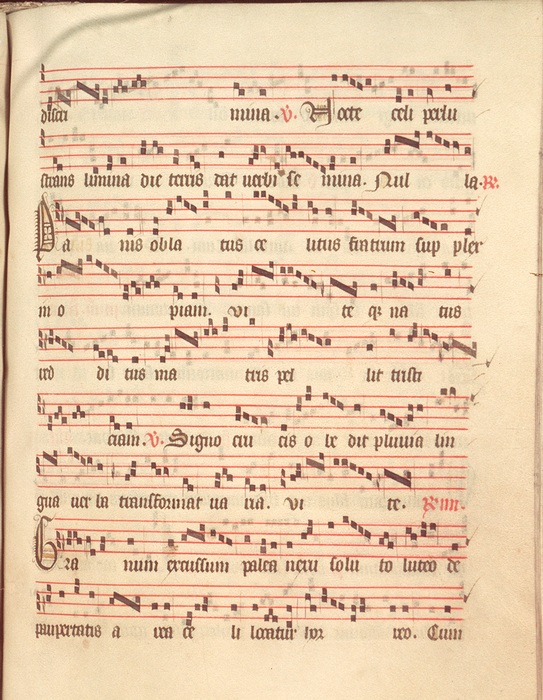 disci mina. V. Nocte celi perlu
strans lumina die terris dat verbi se mina. Nul la. R.
Pa nis obla tus ce litus fratrum sup plet
in o piam. vi te q̄ na tus
red di tus ma tris pel lit tristi
ciam. V. Signo cru cis o le dit pluvia lin
gua ver ba transformat va ria. vi te. R. iii.
Gra num excussum palea nexu solu to luteo de
paupertatis a rea ce li locatur hor reo. Cum